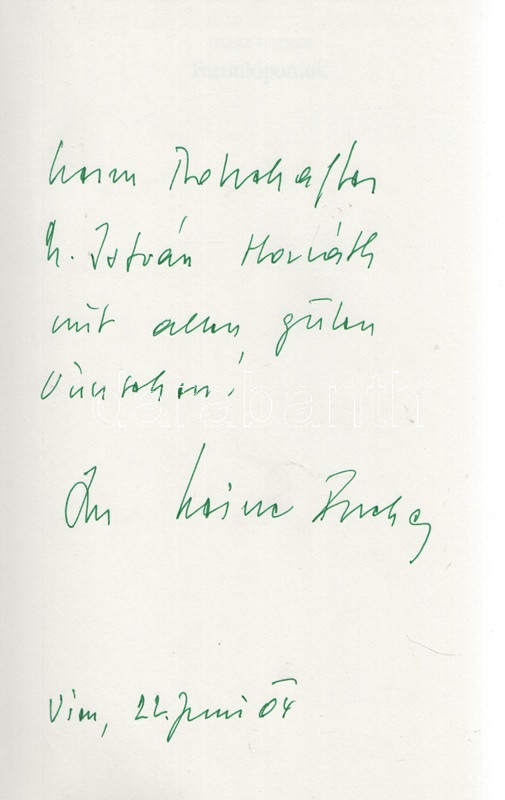 Herrn Botschafter
h. István Horváth
mit allen guten
Wünschen!
Ihr Heinz Fischer
Wien, 22. Juni 04
darabanth